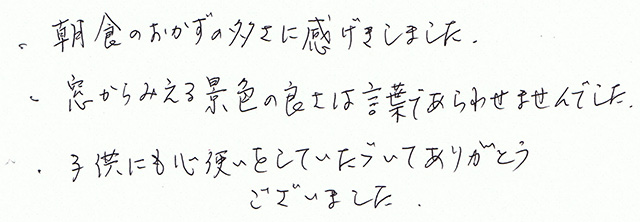 ・朝食のおかずの多さに感げきしました.
・窓からみえる景色の良さは言葉であらわせませんでした.
・子供にも心使いをしていたづいてありがとう
ございました.